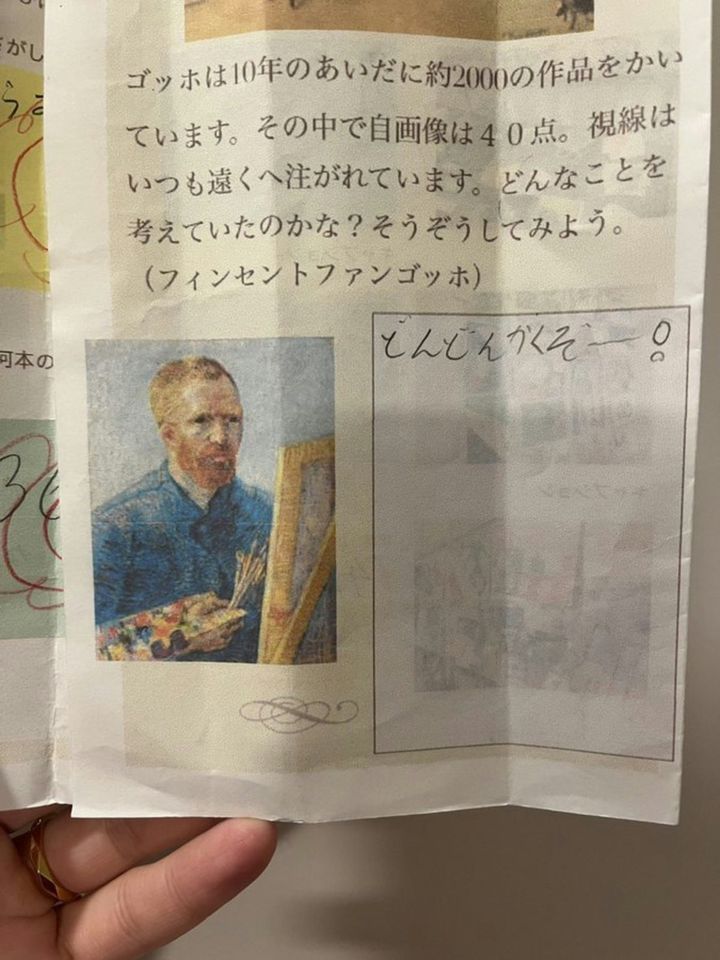 がし
ゴッホは10年のあいだに約2000の作品をかい
ています。その中で自画像は40点。視線は
いつも遠くへ注がれています。どんなことを
考えていたのかな？そうぞうしてみよう。
（フィンセントファンゴッホ）
河本の
どんどんかくぞー！
キャプション